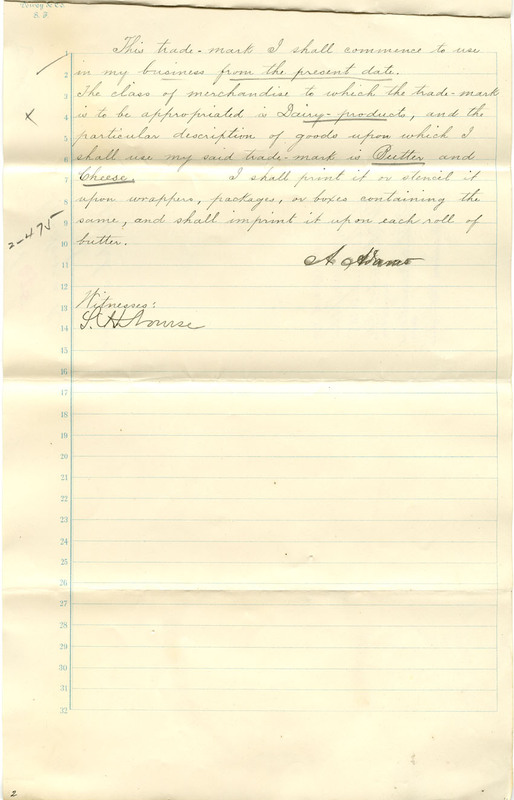 Dewey & Co.
S. F.
1 This trade-mark I shall commence to use
2 in my business from the present date.
3 The class of merchandise to which the trade-mark
4 is to be appropriated is Dairy-products, and the
5 particular description of goods upon which I
6 shall use my said trade-mark is Butter and
7 Cheese. I shall print it or stencil it
8 upon wrappers, packages, or boxes containing the
9 same, and shall imprint it upon each roll of
10 butter.
x
2-475
11 A. Adams
12
13 Witnesses:
14 S. H. Nourse
14
15
16
17
18
19
20
21
22
23
24
25
26
27
28
29
30
31
32
2